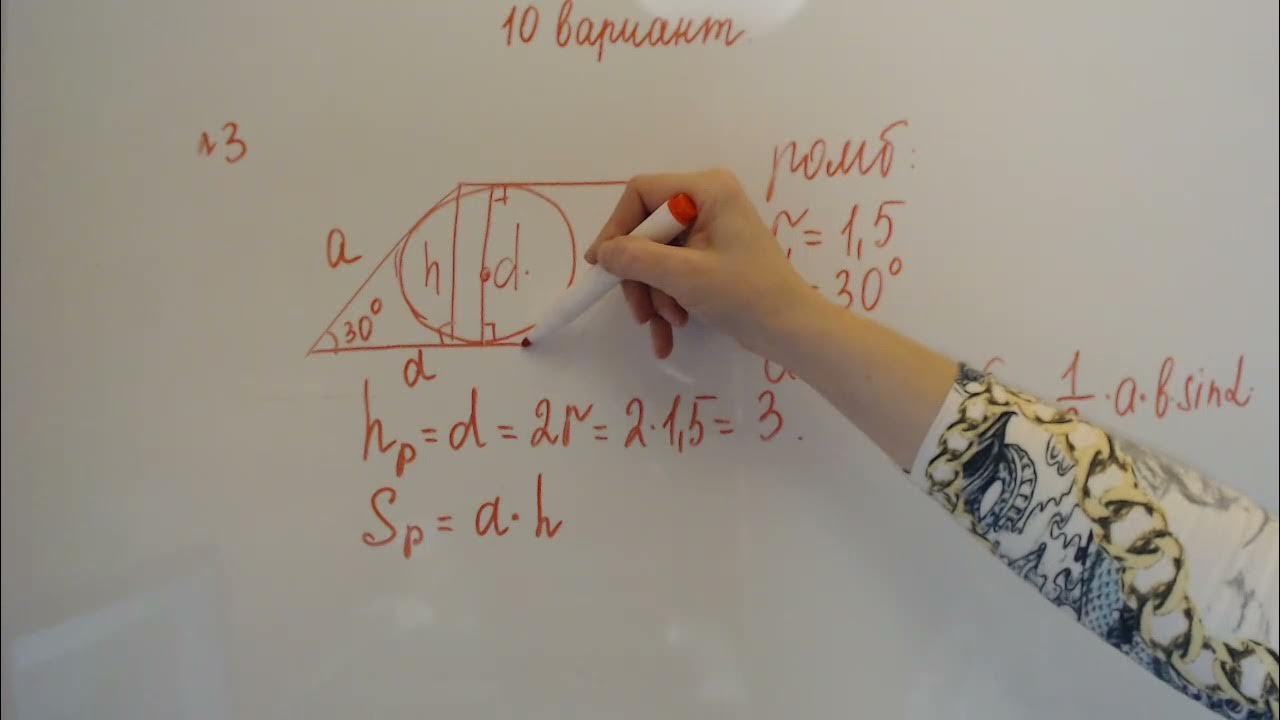 10 вариант.
№3
ромб:
r = 1,5
30°
a
h d.
30°
a
1 · a · b · sinα.
hр = d = 2r = 2·1,5 = 3.
Sр = a · h